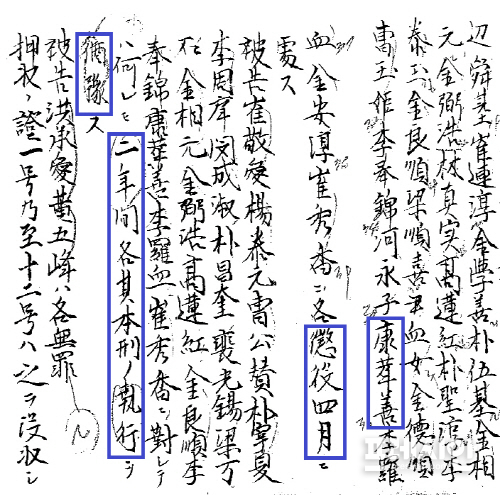 崔連淳金典善朴伍基金相
元金弼浩林真実高蓮紅朴聖浩李
泰玉金良順梁順喜尹血女金德順
曺玉姙李奉錦河永子康莘善李羅
血金安淳崔秀香ニ各懲役四月ニ
處ス
被告崔敬愛楊泰元曺公賛朴宰夏
李周庠閔成淑朴昌奎裵光錫梁万
石金相元金弼浩高蓮紅金良順李
奉錦康莘善李羅血崔秀香ニ對シテ
ハ何レモ二年間各其本刑ノ執行ヲ
猶豫ス
被告洪承愛黄五峰ハ各無罪
押収ノ證一号乃至十二号ハ之ヲ没収シ